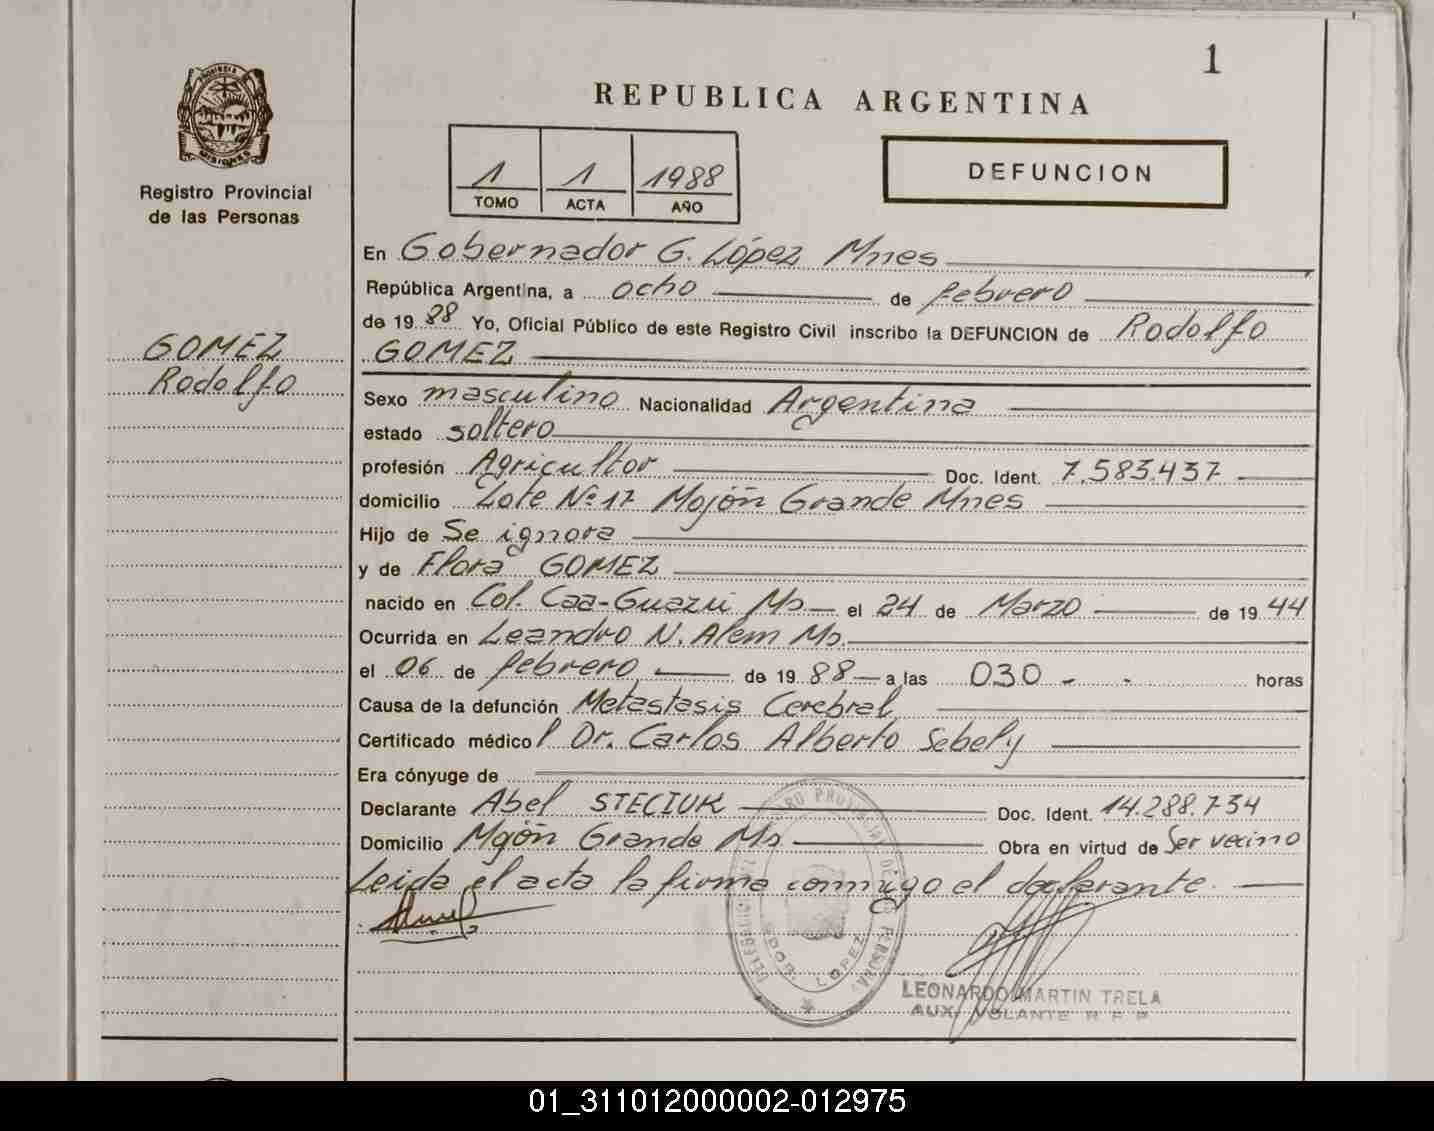 1
PROVINCIA DE
MISIONES
Registro Provincial
de las Personas
REPUBLICA ARGENTINA
1 1 1988
TOMO ACTA AÑO
DEFUNCION
En Gobernador G. López Mnes
República Argentina, a ocho de febrero
de 1988 Yo, Oficial Público de este Registro Civil inscribo la DEFUNCION de Rodolfo
GOMEZ
GOMEZ
Rodolfo
Sexo masculino Nacionalidad Argentina
estado soltero
profesión Agricultor Doc. Ident. 7.583.437
domicilio Lote Nº 17 Mojón Grande Mnes
Hijo de Se ignora
y de Flora GOMEZ
nacido en Col. Caa-Guazú Ms el 24 de Marzo de 1944
Ocurrida en Leandro N. Alem Ms.
el 06 de febrero de 1988 a las 030 - - horas
Causa de la defunción Metastasis Cerebral
Certificado médico Dr. Carlos Alberto Sebely
Era cónyuge de
Declarante Abel STECIUK Doc. Ident. 14.288.734
Domicilio Mojón Grande Ms Obra en virtud de Ser vecino
Leida el acta la firma conmigo el declarante.
GDOR. LOPEZ
LEONARDO MARTIN TRELA
AUX. VOLANTE R. P. P.
01_311012000002-012975